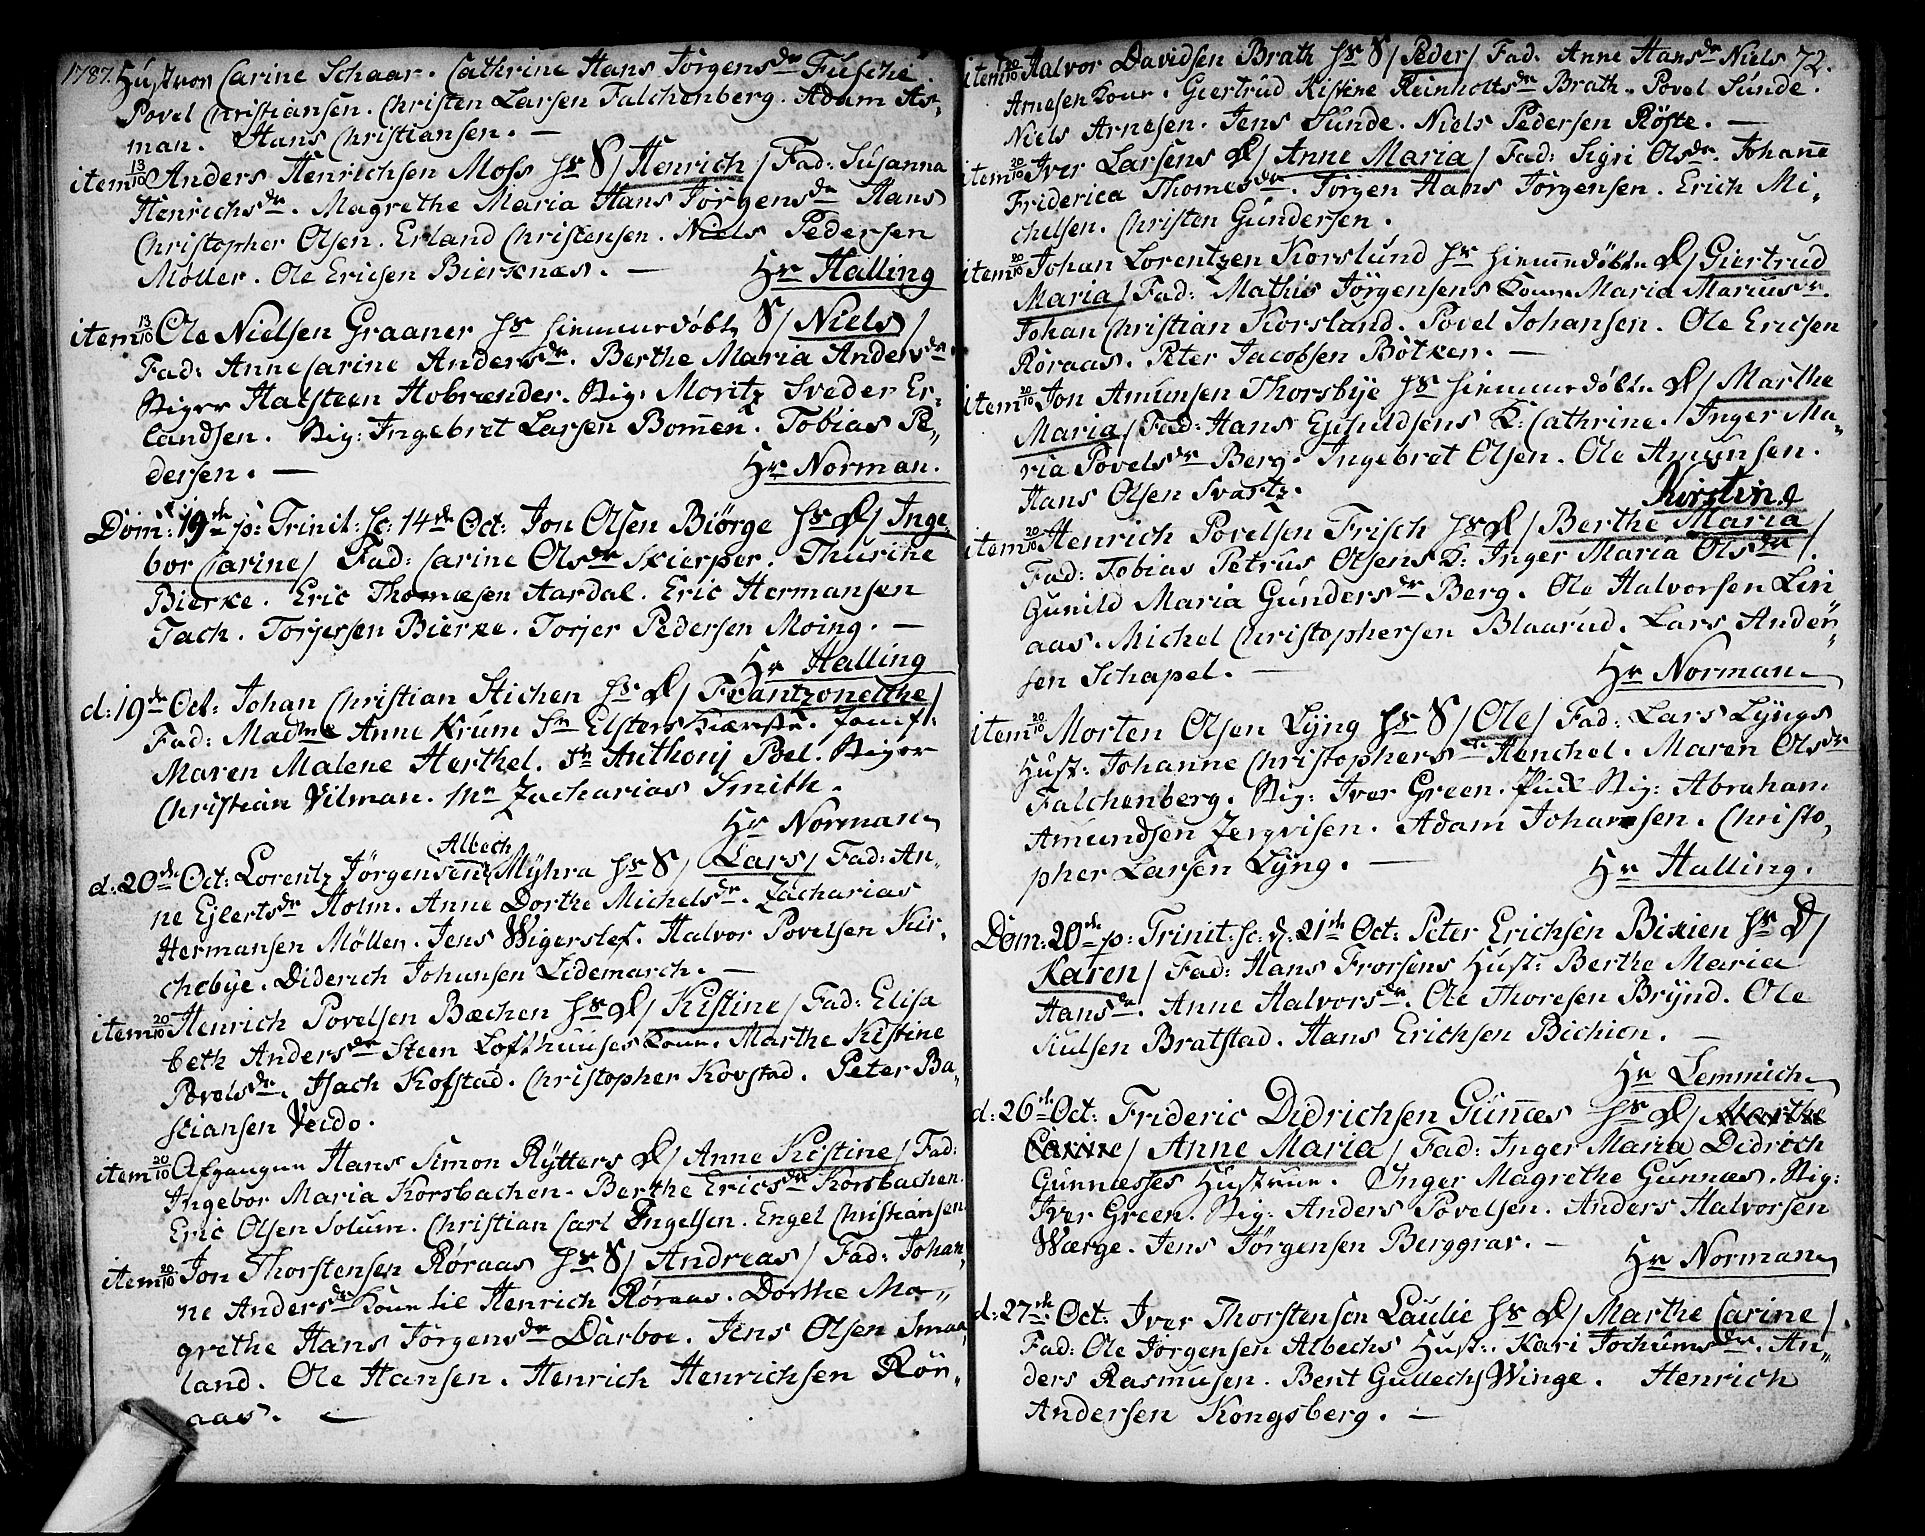 1787. Hustron Carine Schaar. Cathrine Hans Jörgensdr Fusche.
Povel Christiansen. Christen Larsen Falchenberg. Adam As-
man. Hans Christiansen. —
item 13/10 Anders Henrichsen Moss hs S/ Henrich / Fad: Susanna
Henrichsdr. Magrethe Maria Hans Jörgensdr Hans
Christopher Olsen. Erland Christensen. Niels Pedersen
Möller. Ole Ericsen Bierknæs. —
Hr Halling
item 13/10 Ole Nielsen Graaner hs hiemmedöbte S/ Niels /
Fad: Anne Carine Andersdr. Berthe Maria Andersdr.
Stiger Halsteen Hobrænder. Stig: Moritz Sveder Er-
landsen. Stig: Ingebret Larsen Bomen. Tobias Pe-
dersen. —
Hr Norman.
Dom: 19de p: Trinit: sc: 14de Oct: Jon Olsen Biörge hs D/ Inge
bor Carine/ Fad: Carine Olsdr Skierper. Thurine
Bierke. Eric Thomæsen Aardal. Eric Hermansen
Tach. Torjersen Bierke. Torjer Pedersen Moing. —
Hr Halling
d: 19de Oct: Johan Christian Stichen hs D/ Frantzonethe/
Fad: Madme Anne Krum Sr Elsters Kiæreste. Jomf:
Maren Malene Herthel. Sr Anthonj Poel. Stiger
Christian Vilman. Mr Zacharias Smith.
Hr Norman
Albech
d: 20de Oct: Lorentz Jörgensen Mÿhra hs S/ Lars / Fad: An-
ne Ejlertsdr Holm. Anne Dorthe Michelsdr. Zacharias
Hermansen Möllen. Jens Wigerslef. Halvor Povelsen Kir-
chebÿe. Diderich Johansen Lidemarch. —
item 20/10 Henrich Povelsen Bæchen hs D/ Kistine / Fad: Elisa
beth Andersdr Steen Lofthuuses Kone. Marthe Kistine
Povelsdr. Isach Kofstad. Christopher Kovstad. Peter Ba-
stiansen Veido.
item 20/10 Afgangne Hans Simon Rÿtters D/ Anne Kistine / Fad:
Ingebor Maria Korsbachen. Berthe Ericsdr Korsbachen.
Eric Olsen Solum. Christian Carl Ingelsen. Engel Christiansen
item 20/10 Jon Thorstensen Röraas hs S/ Andreas / Fad: Johan-
ne Andersdr Kone til Henrich Röraas. Dorthe Ma-
grethe Hans Jörgensdr Darboe. Jens Olsen Smaa-
land. Ole Hansen. Henrich Henrichsen Rör-
aas. —
item 20/10 Halvor Davidsen Brath hs S/ Peder / Fad: Anne Hansdr Niels 72.
Arnesen Kone. Giertrud Kistine Reinholtsdr Brath. Povel Sunde.
Niels Arnesen. Jens Sunde. Niels Pedersen Röste. —
item 20/10 Iver Larsens D/ Anne Maria / Fad: Sigri Olsdr. Johane
Friderica Thomesdr. Jörgen Hans Jörgensen. Erich Mi-
chelsen. Christen Gundersen.
item 20/10 Johan Lorentzen Korslund hs hiemedöbte D/ Giertrud
Maria / Fad: Mathis Jörgensens Kone Maria Mariusdr.
Johan Christian Korsland. Povel Johansen. Ole Ericsen
Röraas. Peter Jacobsen Bötken. —
item 20/10 Jon Amunsen Thorsbÿe hs hiemmedöbte D/ Marthe
Maria / Fad: Hans Ejsfuldsens K: Cathrine. Inger Ma-
ria Povelsdr Berg. Ingebret Olsen. Ole Amunsen.
Hans Olsen Svartz.
Kirstine
item 20/10 Henrich Povelsen Frisch hs D/ Berthe Maria /
Fad: Tobias Petrus Olsens K: Inger Maria Olsdr.
Gunild Maria Gundersdr Berg. Ole Halvorsen Lin
aas. Michel Christophersen Blaarud. Lars Ander-
sen Schapel. —
Hr Norman
item 20/10 Morten Olsen Lÿng hs S/ Ole / Fad: Lars Lÿngs
Hust: Johanne Christophersdr Henchel. Maren Olsdr
Falchenberg. Stig: Iver Green. Stig: Abraham
Amundsen Zergvisen. Adam Johansen. Christo-
pher Larsen Lÿng. —
Hr Halling.
Dom: 20de p: Trinit: sc: d: 21de Oct: Peter Erichsen Bixien hs D/
Karen / Fad: Hans Frorsens Hust: Berthe Maria
Hansdr. Anne Halvorsdr. Ole Thoresen Brÿnd. Ole
Kulsen Bratstad. Hans Erichsen Bichien. —
Hr Lemmich
d: 26de Oct: Frideric Didrichsen Gunnæs hs D/ Marthe
Carine/ Anne Maria / Fad: Inger Maria Didrich
Gunnæsses Hustrue. Inger Magrethe Gunnæs. Stig:
Iver Green. Stig: Anders Povelsen. Anders Halvorsen
Wærge. Jens Jörgensen Berggrav. —
Hr Norman
d: 27de Oct: Iver Thorstensen Laulie hs D/ Marthe Carine /.
Fad: Ole Jörgensen Albechs Hust: Kari Jochumsdr. An-
ders Rasmusen. Bent Gullechs Winge. Henrich
Andersen Kongsberg. —